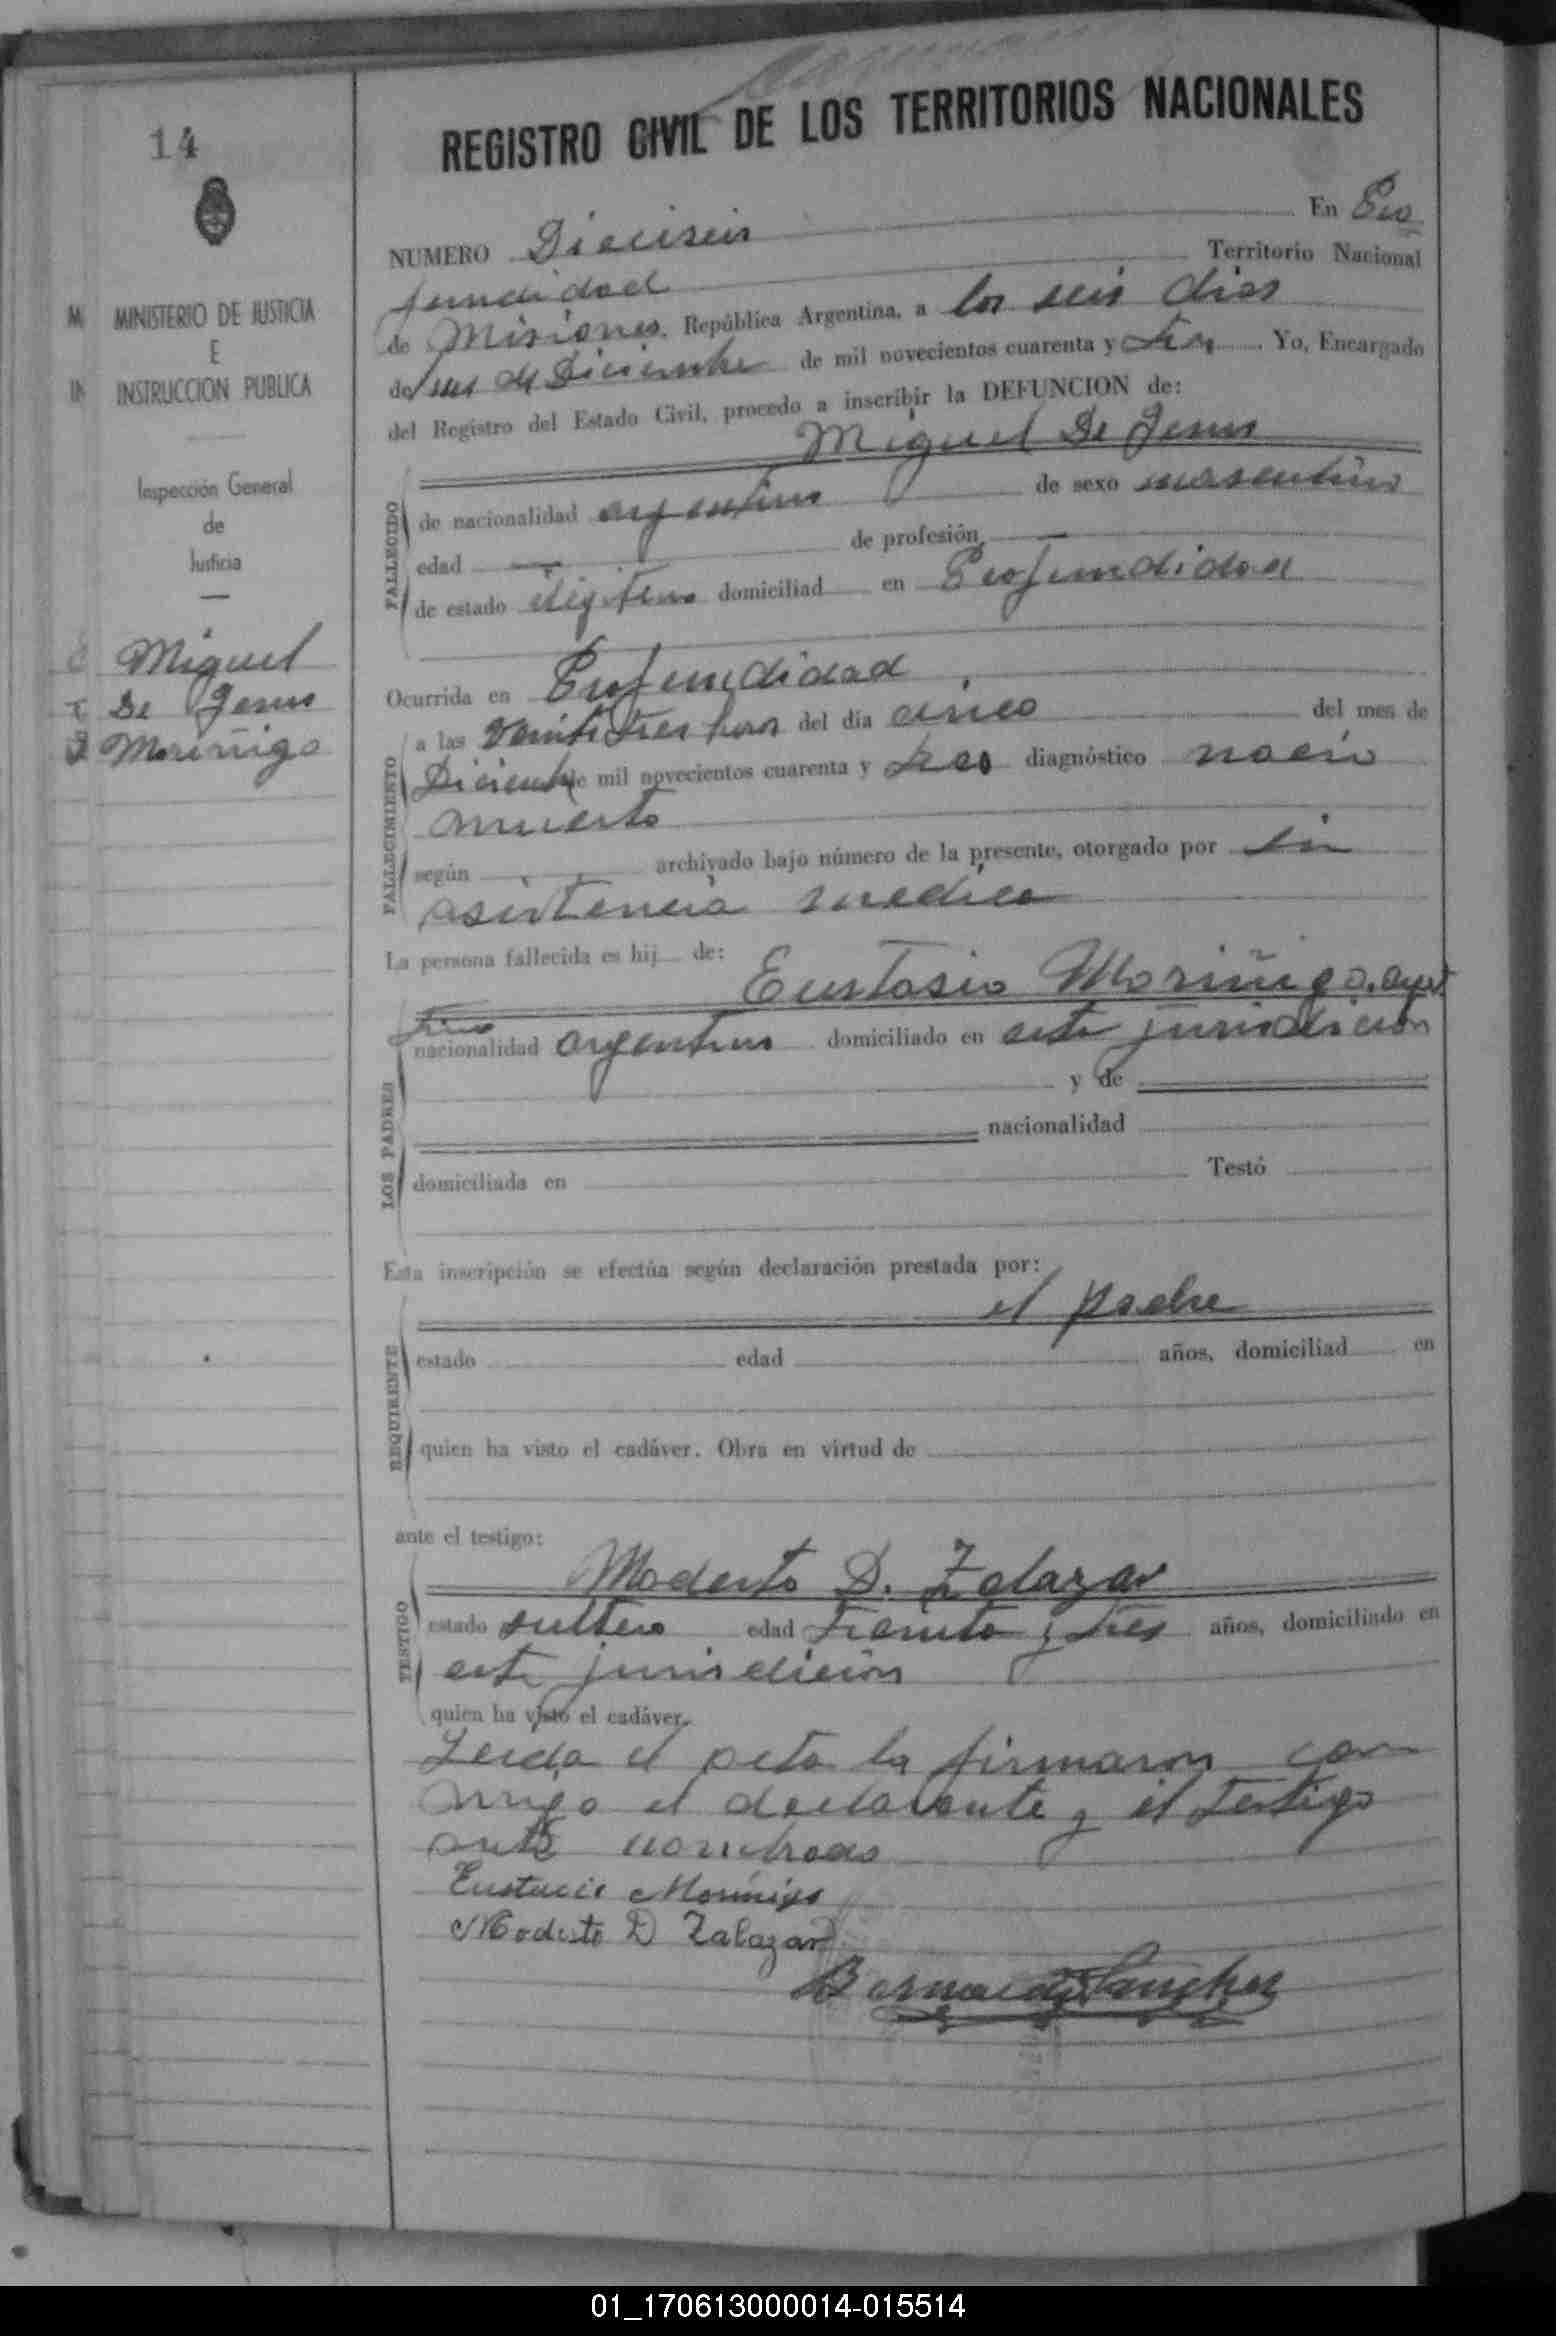 14
MINISTERIO DE JUSTICIA
E
INSTRUCCION PUBLICA
Inspección General
de
Justicia
Miguel
De Jesus
Moriñigo
REGISTRO CIVIL DE LOS TERRITORIOS NACIONALES
NUMERO Dieciseis En Pro
fundidad Territorio Nacional
de Misiones, República Argentina, a los seis dias
de mes de Diciembre de mil novecientos cuarenta y tres Yo, Encargado
del Registro del Estado Civil, procedo a inscribir la DEFUNCION de:
Miguel De Jesus
FALLECIDO
de nacionalidad argentino de sexo masculino
edad — de profesión —
de estado ilegitimo domiciliad en Profundidad
Ocurrida en Profundidad
FALLECIMIENTO
a las veintitres horas del día cinco del mes de
Diciembre de mil novecientos cuarenta y tres diagnóstico nacio
muerto
según archivado bajo número de la presente, otorgado por sin
asistencia medica
La persona fallecida es hij de:
Eustasio Moriñigo, argen
tino
LOS PADRES
nacionalidad argentino domiciliado en esta jurisdicion
y de
nacionalidad
domiciliada en Testó
Esta inscripción se efectúa según declaración prestada por:
el padre
REQUIRENTE
estado edad años, domiciliad en
quien ha visto el cadáver. Obra en virtud de
ante el testigo:
Modesto D. Zalazar
TESTIGO
estado soltero edad treinta y tres años, domiciliado en
esta jurisdicion
quien ha visto el cadáver.
Leida el acta la firmaron con
migo el declarante y el testigo
ante nombrado
Eustacio Moriñigo
Modesto D Zalazar
Sanchez
01_170613000014-015514